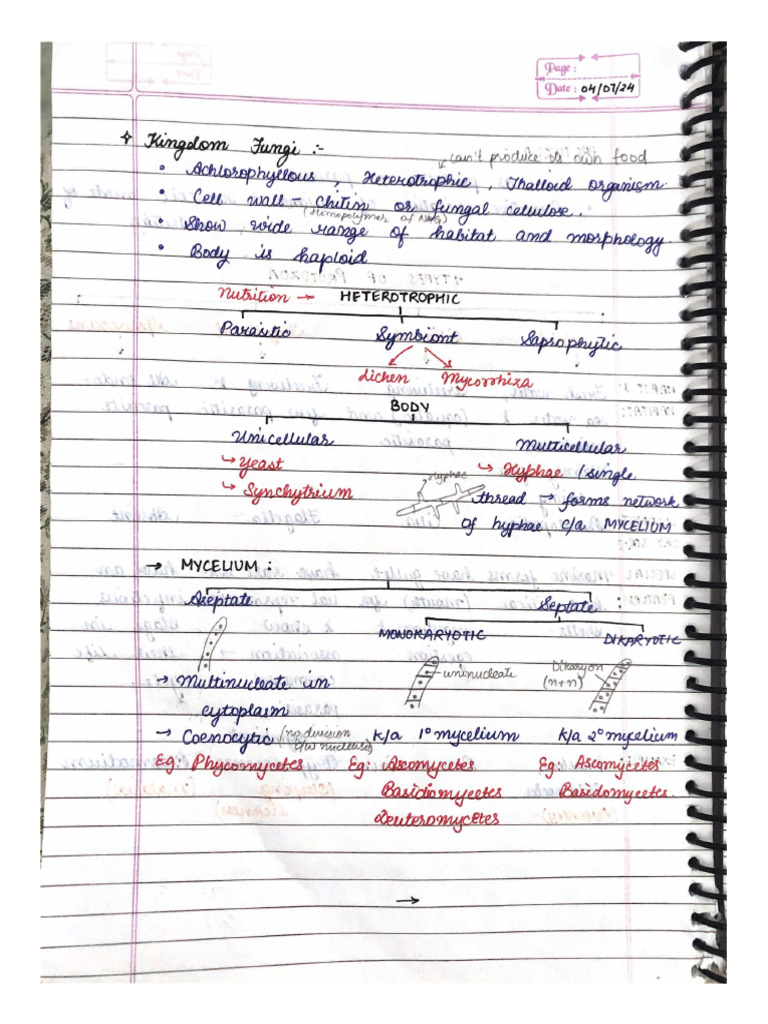 Page :
Date : 04/07/24
Kingdom Fungi :-
can't produce its own food
• Achlorophyllous , Heterotrophic Thalloid organism.
• Cell wall - Chitin or fungal cellulose.
(Homopolymer of NAG)
• Show wide range of habitat and morphology.
• Body is haploid
Nutrition → HETEROTROPHIC
Parasitic Symbiont Saprophytic
Lichen Mycorrhiza
BODY
Unicellular Multicellular
↳ Yeast ↳ Hyphae / single
↳ Synchytrium hyphae thread → forms network
of hyphae c/a MYCELIUM
→ MYCELIUM :
Aseptate Septate
MONOKARYOTIC DIKARYOTIC
uninucleate Dikaryon
(n+n)
→ Multinucleate in
cytoplasm
→ Coenocytic (no division
b/w nucleus) k/a 1° mycelium k/a 2° mycelium
Eg: Phycomycetes Eg: Ascomycetes Eg: Ascomycetes
Basidiomycetes Basidomycetes.
Deuteromycetes
→